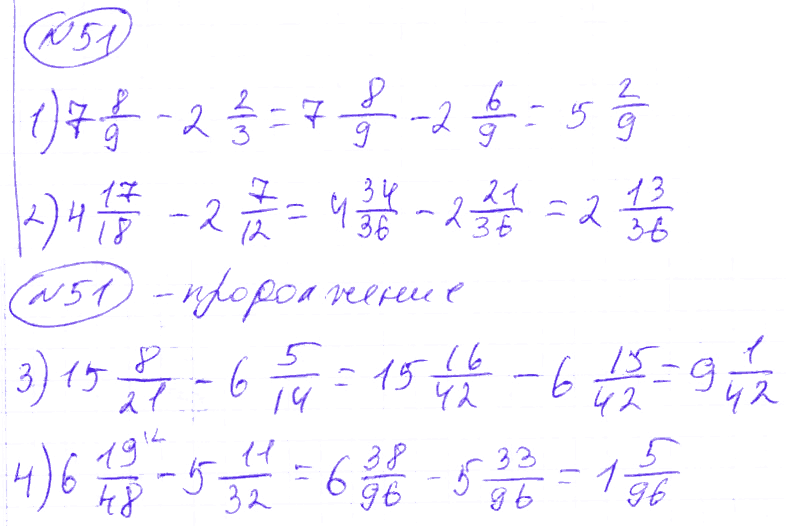 №51
1) 7 8/9 - 2 2/3 = 7 8/9 - 2 6/9 = 5 2/9
2) 4 17/18 - 2 7/12 = 4 34/36 - 2 21/36 = 2 13/36
№51 - продолжение
3) 15 8/21 - 6 5/14 = 15 16/42 - 6 15/42 = 9 1/42
4) 6 19/48 - 5 11/32 = 6 38/96 - 5 33/96 = 1 5/96